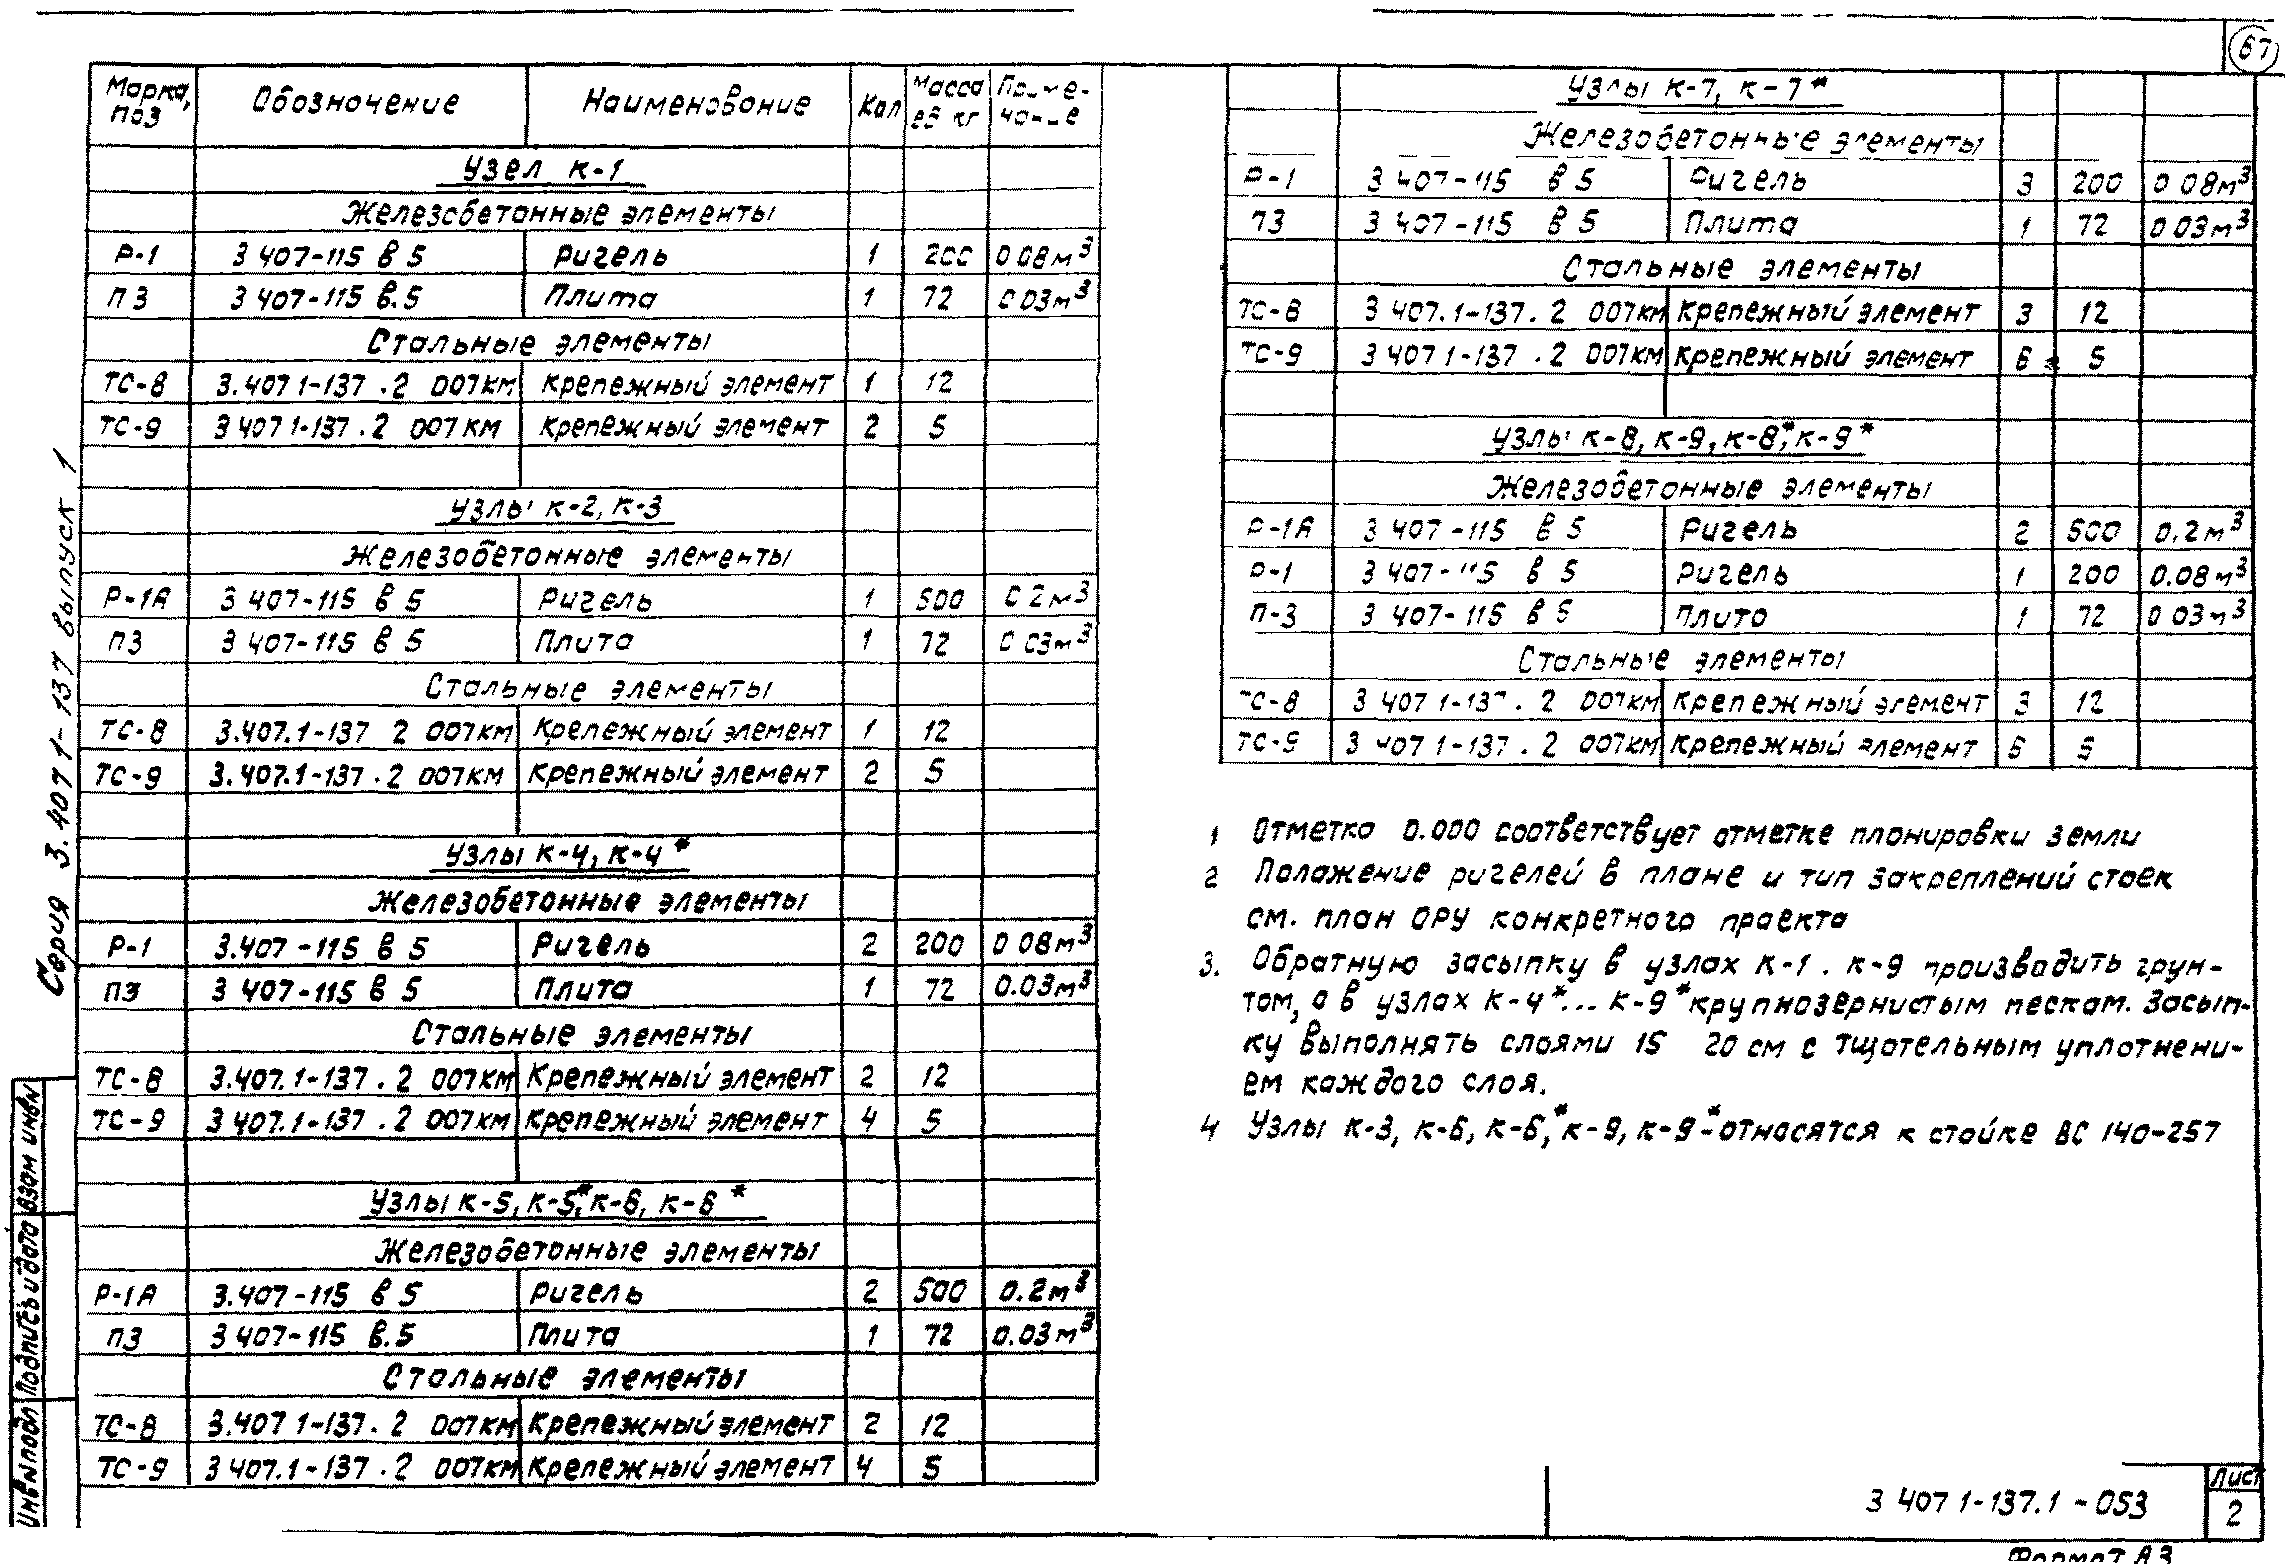 67
Марка, поз Обозначение Наименование Кол Масса ед кг Приме-чание
Узел К-1
Железобетонные элементы
Р-1 3 407-115 в 5 Ригель 1 200 0 08м³
П3 3 407-115 в.5 Плита 1 72 0 03м³
Стальные элементы
ТС-8 3.407 1-137 .2 007км Крепежный элемент 1 12
ТС-9 3 407 1-137 .2 007км Крепежный элемент 2 5
Узлы К-2, К-3
Железобетонные элементы
Р-1А 3 407-115 в 5 Ригель 1 500 0 2м³
П3 3 407-115 в 5 Плита 1 72 0 03м³
Стальные элементы
ТС-8 3.407.1-137 2 007км Крепежный элемент 1 12
ТС-9 3.407.1-137 .2 007км Крепежный элемент 2 5
Узлы К-4, К-4*
Железобетонные элементы
Р-1 3.407-115 в 5 Ригель 2 200 0 08м³
П3 3 407-115 в 5 Плита 1 72 0.03м³
Стальные элементы
ТС-8 3.407.1-137 . 2 007км Крепежный элемент 2 12
ТС-9 3 407.1-137 .2 007км Крепежный элемент 4 5
Узлы К-5, К-5*, К-6, К-6*
Железобетонные элементы
Р-1А 3.407-115 в 5 Ригель 2 500 0.2м³
П3 3 407-115 в.5 Плита 1 72 0.03м³
Стальные элементы
ТС-8 3.407 1-137. 2 007км Крепежный элемент 2 12
ТС-9 3 407.1-137 .2 007км Крепежный элемент 4 5
Узлы К-7, К-7*
Железобетонные элементы
Р-1 3 407-115 в 5 Ригель 3 200 0 08м³
П3 3 407-115 в 5 Плита 1 72 0 03м³
Стальные элементы
ТС-8 3 407.1-137. 2 007км Крепежный элемент 3 12
ТС-9 3 407 1-137 .2 007км Крепежный элемент 6 5
Узлы К-8, К-9, К-8*, К-9*
Железобетонные элементы
Р-1А 3 407-115 в 5 Ригель 2 500 0.2м³
Р-1 3 407-115 в 5 Ригель 1 200 0.08м³
П-3 3 407-115 в 5 Плита 1 72 0 03м³
Стальные элементы
ТС-8 3 407 1-137 . 2 007км Крепежный элемент 3 12
ТС-9 3 407 1-137 . 2 007км Крепежный элемент 6 5
1 Отметка 0.000 соответствует отметке планировки земли
2 Положение ригелей в плане и тип закреплений стоек
см. план ОРУ конкретного проекта
3. Обратную засыпку в узлах К-1 . К-9 производить грун-
том, а в узлах К-4*... К-9* крупнозернистым песком. Засып-
ку выполнять слоями 15 20 см с тщательным уплотнени-
ем каждого слоя.
4 Узлы К-3, К-6, К-6*, К-9, К-9*-относятся к стойке ВС 140-257
Серия 3.407 1-137 выпуск 1
Инв№подл Подпись и дата Взам инв№
3 407 1-137.1 - 053
Лист
2
Формат А3